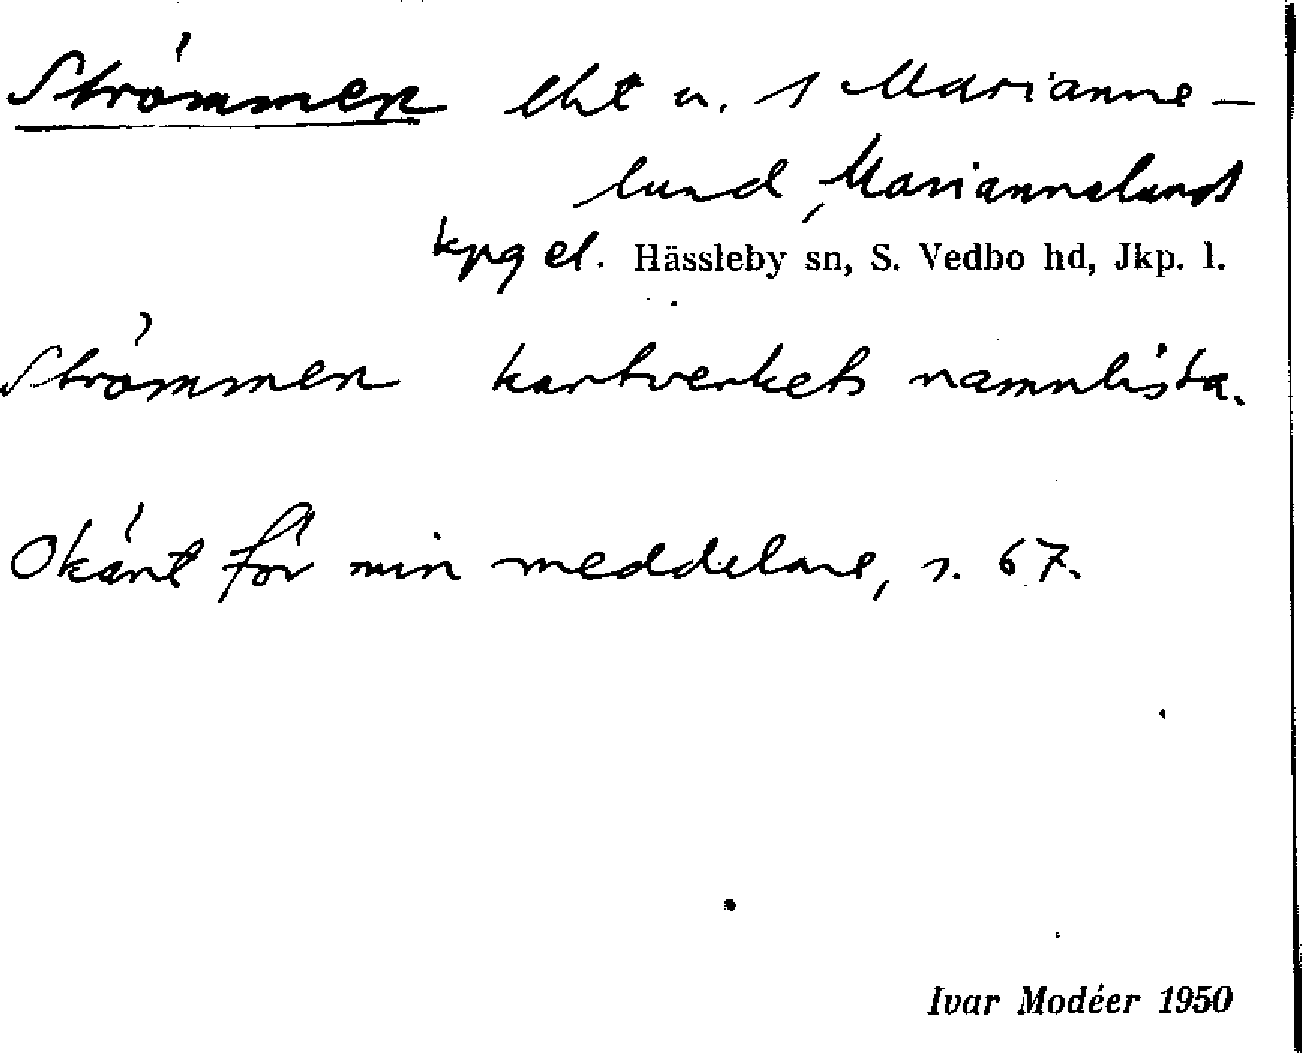 Strömmen lht u. 1 Marianne-
lund, Mariannelunds
kpg el. Hässleby sn, S. Vedbo hd, Jkp. l.
Strömmen kartverkets namnlista.
Okänt för min meddelare, s. 67.
Ivar Modéer 1950